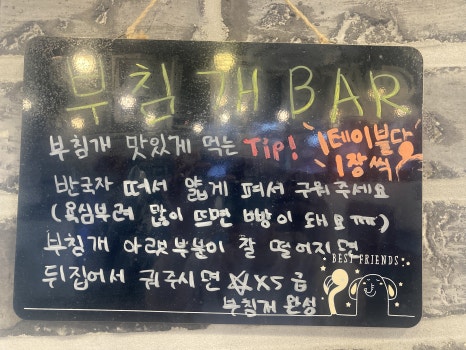 부침개 BAR
부침개 맛있게 먹는 Tip!
1테이블당
1장씩
반국자 떠서 얇게 펴서 구워주세요
(욕심부려 많이 뜨면 빵이 돼요ㅠㅠ)
부침개 아랫부분이 잘 떨어지면
BEST FRIENDS
뒤집어서 궈주시면 XX5금
부침개 완성